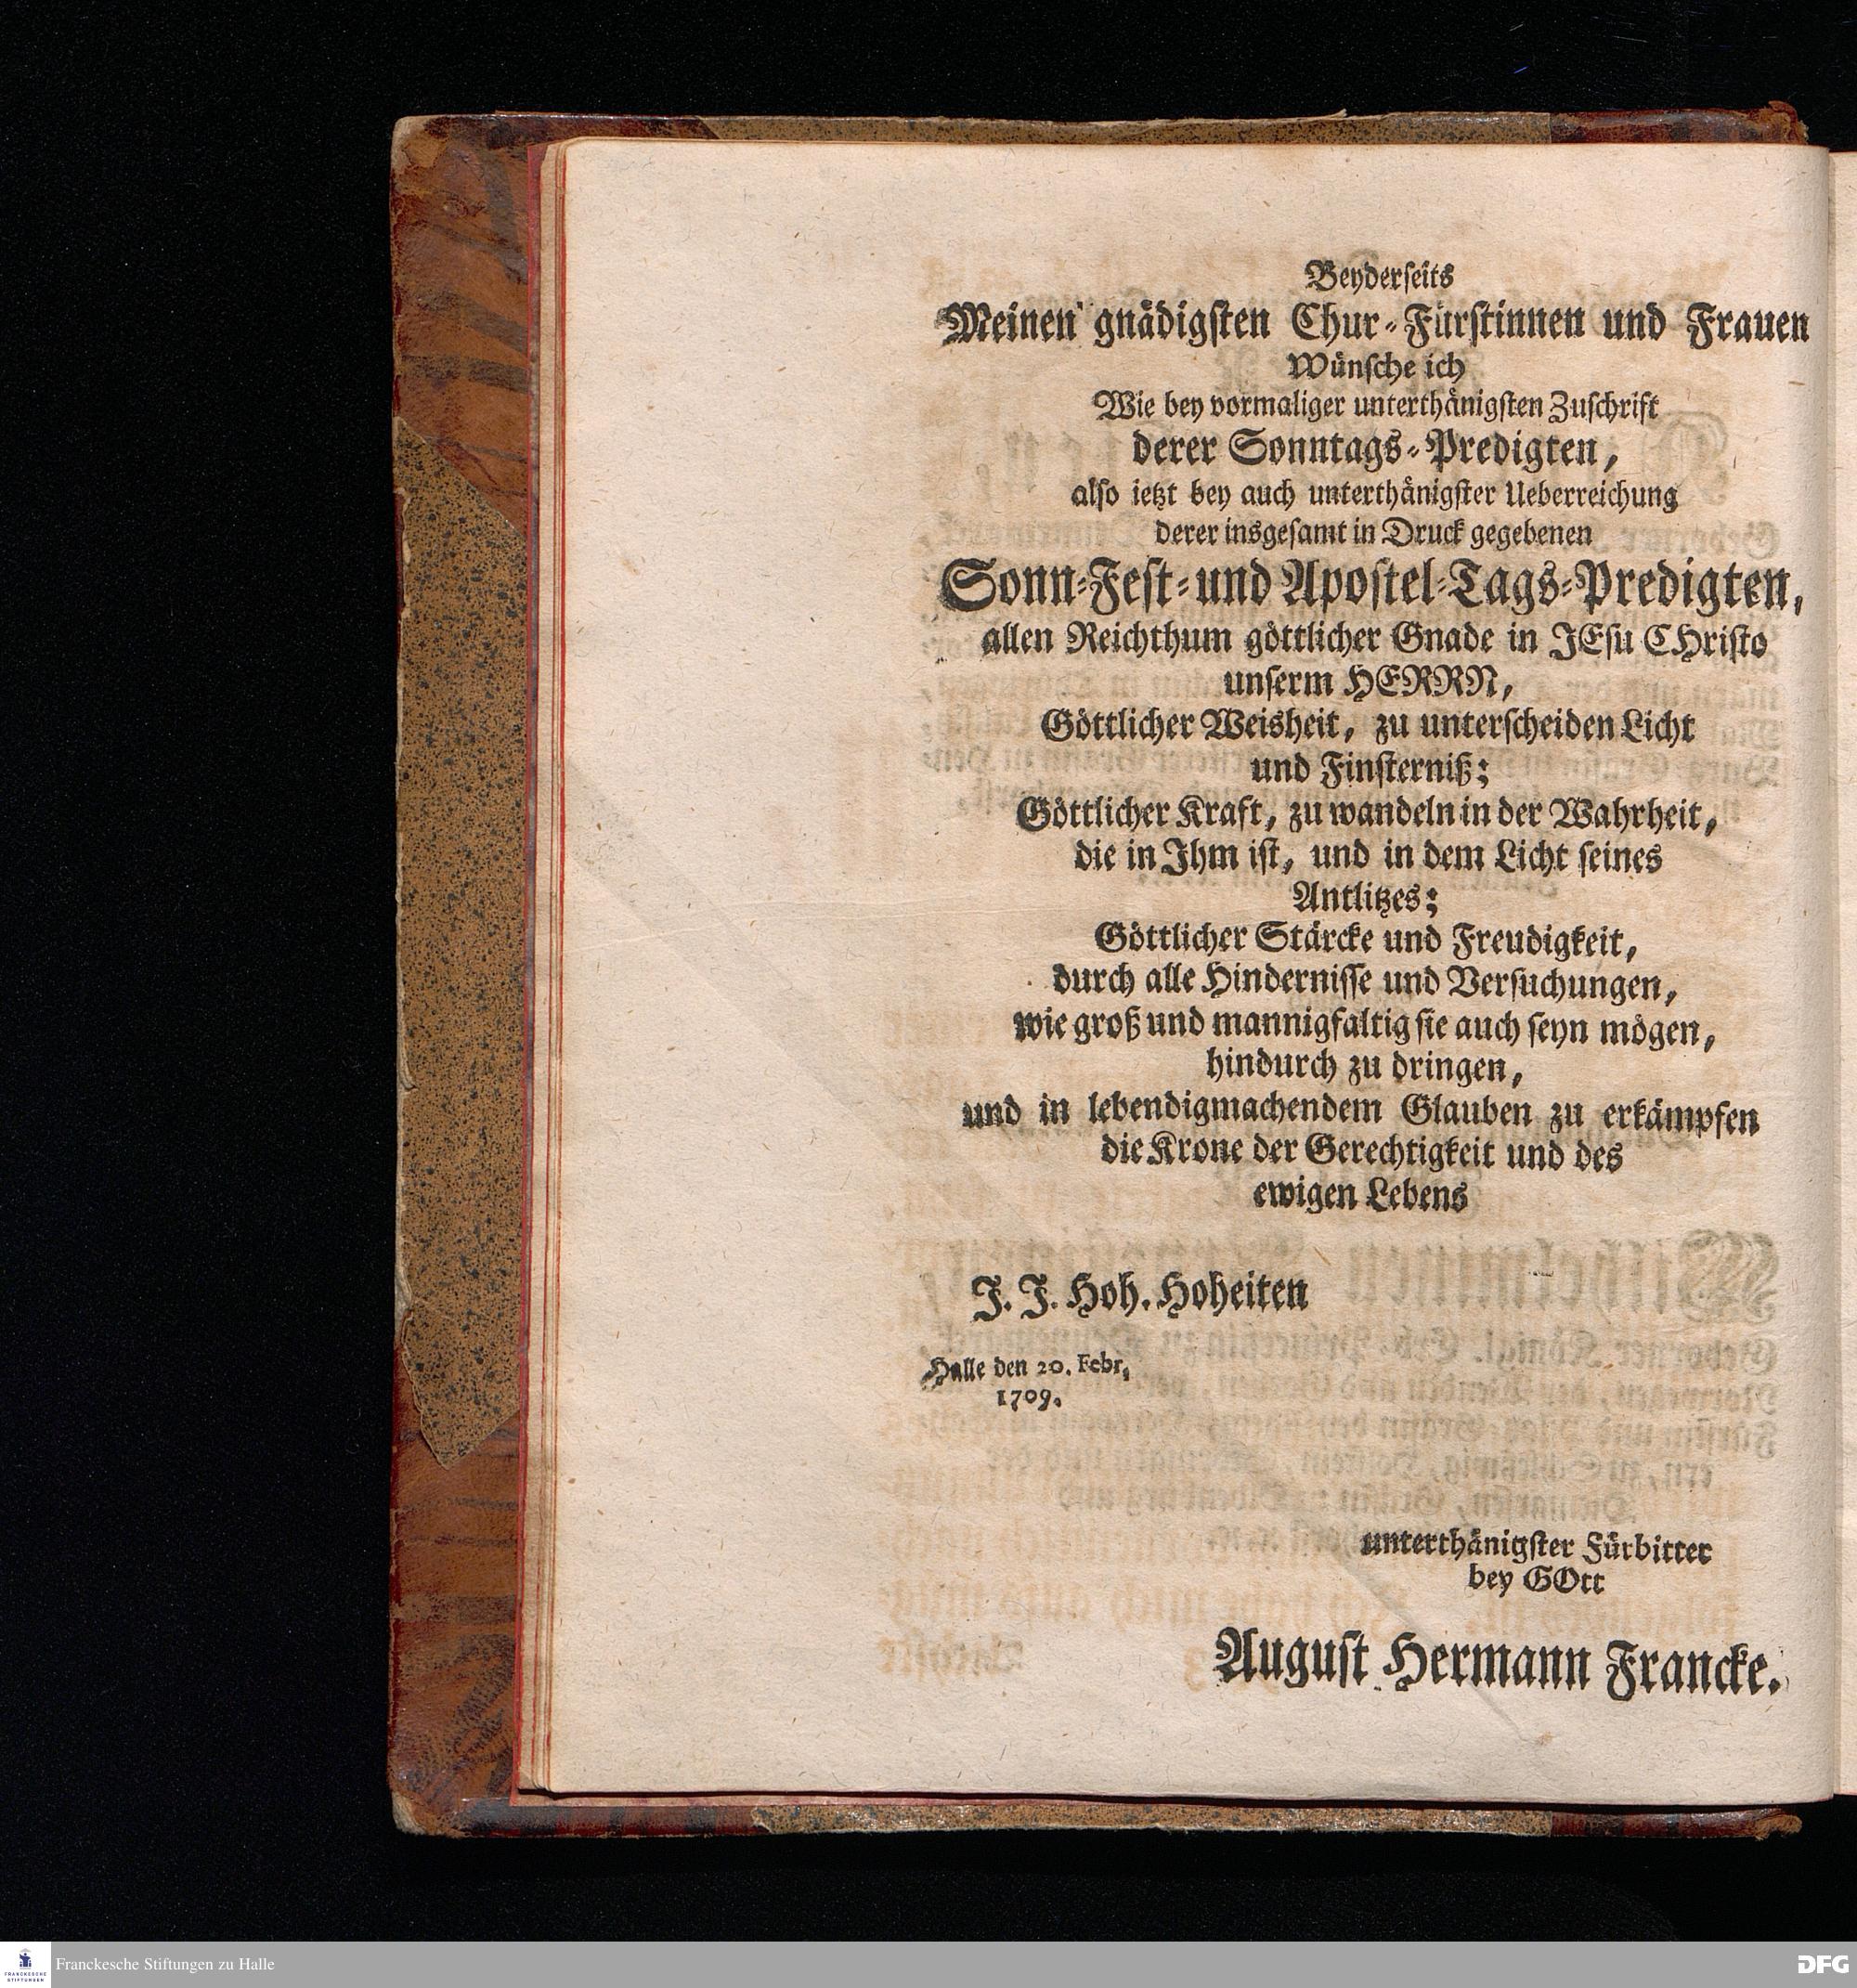 Beyderſeits
Meinen gnädigſten Chur-Fürſtinnen und Frauen
Wünſche ich
Wie bey vormaliger unterthänigſten Zuſchrift
derer Sonntags-Predigten,
alſo ietzt bey auch unterthänigſter Ueberreichung
derer insgeſamt in Druck gegebenen
Sonn-Feſt-und Apoſtel-Tags-Predigten,
allen Reichthum göttlicher Gnade in JEſu CHriſto
unſerm HERRN,
Göttlicher Weisheit, zu unterſcheiden Licht
und Finſterniß;
Göttlicher Kraft, zu wandeln in der Wahrheit,
die in Ihm iſt, und in dem Licht ſeines
Antlitzes;
Göttlicher Stärcke und Freudigkeit,
durch alle Hinderniſſe und Verſuchungen,
wie groß und mannigfaltig ſie auch ſeyn mögen,
hindurch zu dringen,
und in lebendigmachendem Glauben zu erkämpfen
die Krone der Gerechtigkeit und des
ewigen Lebens
J. J. Hoh. Hoheiten
Halle den 20. Febr.
1709.
unterthänigſter Fürbitter
bey GOtt
Auguſt Hermann Francke.
FRANCKESCHE
STIFTUNGEN
Franckesche Stiftungen zu Halle
DFG